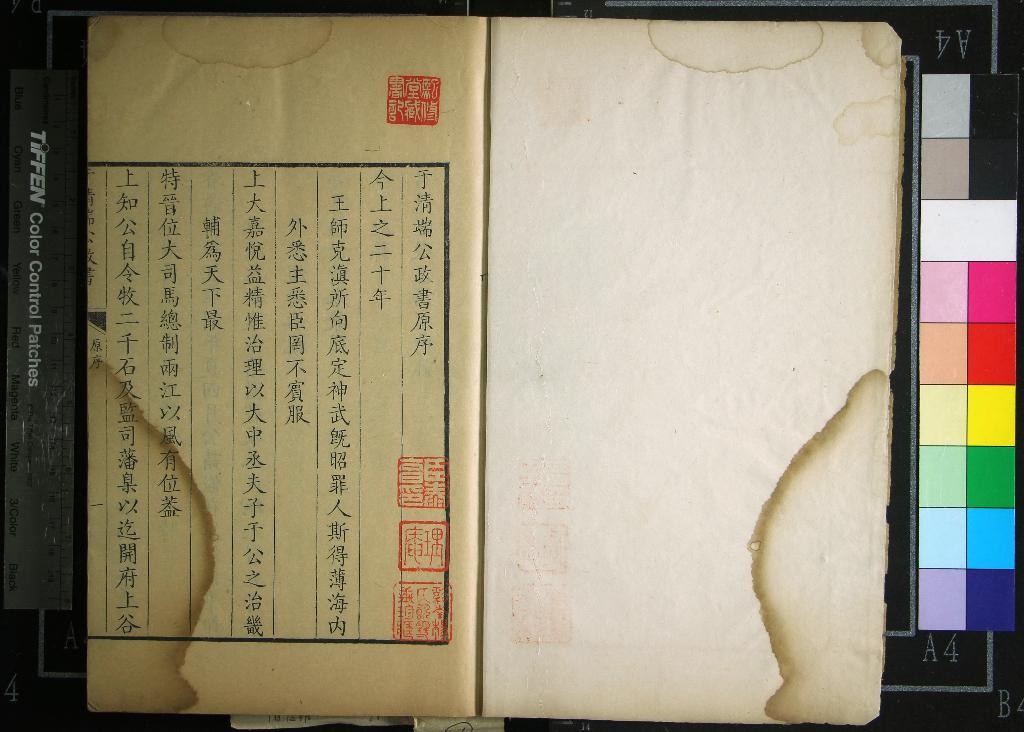 于清端公政書原序
今上之二十年
王師克滇所向底定神武既昭罪人斯得薄海內
外悉主悉臣罔不賓服
上大嘉悅益精惟治理以大中丞夫子于公之治畿
輔爲天下最
特晉位大司馬總制兩江以風有位葢
上知公自令牧二千石及監司藩臬以迄開府上谷
清端公政書
原序
一
TIFFEN Color Control Patches
Blue
Cyan
Green
Yellow
Red
Magenta
White
3/Color
Black
A4
A4
A
4
B4